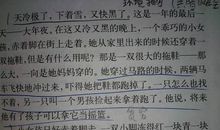 环境描写
天冷极了,下着雪,又快黑了。这是一年的最后一
天——大年夜。在这又冷又黑的晚上,一个乖巧的小女
孩,赤着脚在街上走着。她从家里出来的时候还穿着一
双拖鞋,但是有什么用呢?那是一双很大的拖鞋——那
么大,一向是她妈妈穿的。她穿过马路的时候,两辆马
车飞快地冲过来,吓得她把鞋都跑掉了。一只怎么也找
不着,另一只叫一个男孩捡起来拿着跑了。他说,将来
他有了孩子可以拿它当摇篮。